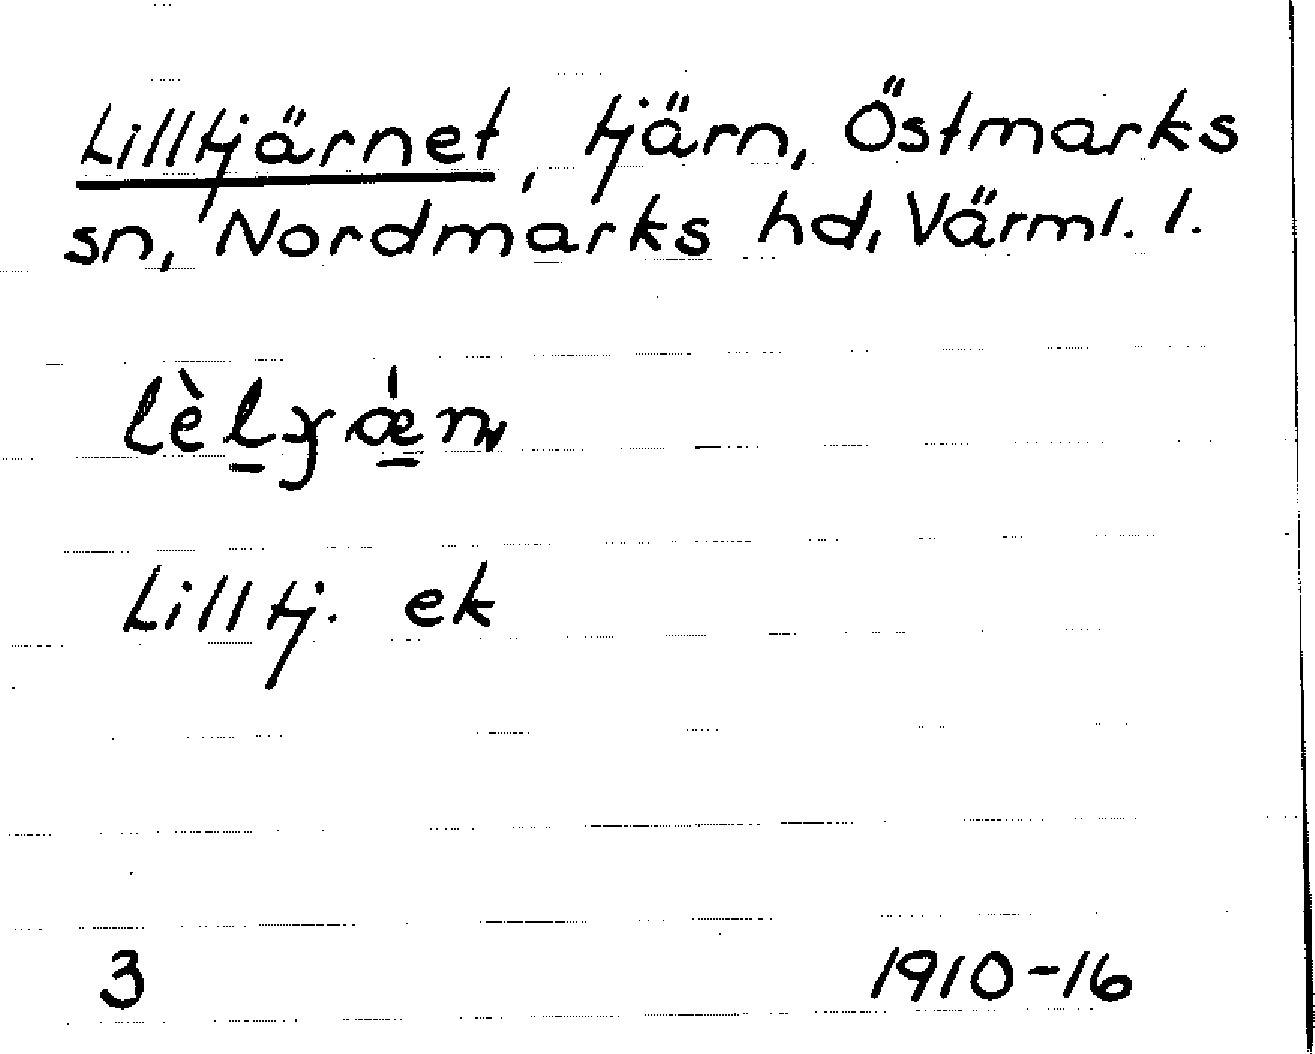 Lilltjärnet, tjärn, Östmarks
sn, Nordmarks hd, Värml. l.
Lilltj. ek
3 1910-16